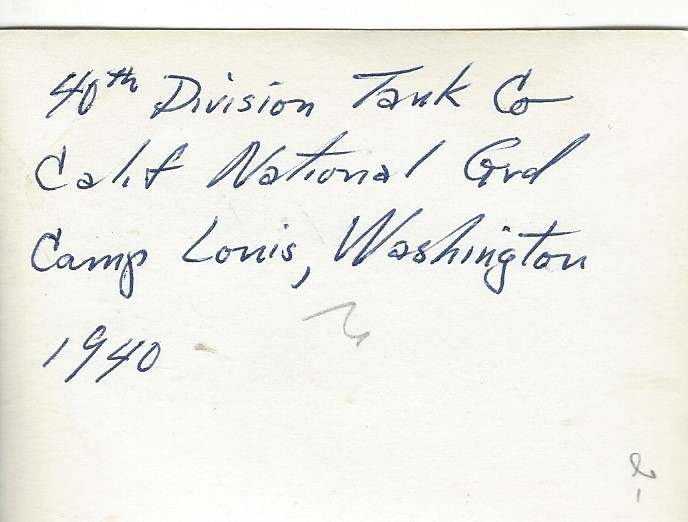 40th Division Tank Co
Calif National Grd
Camp Louis, Washington
1940